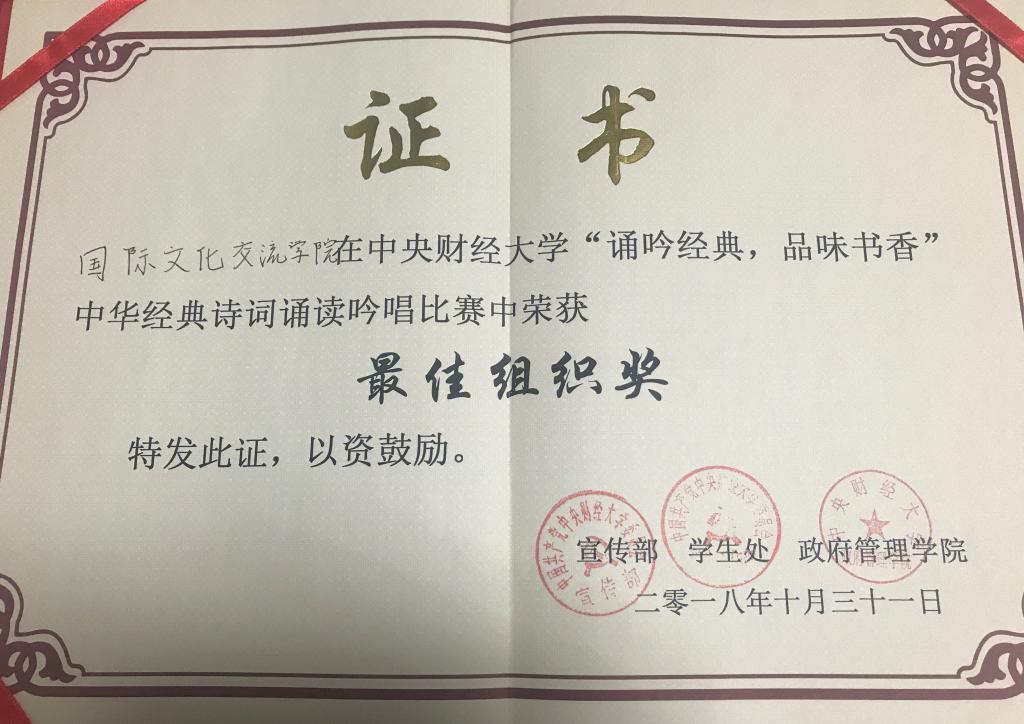 证书
国际文化交流学院在中央财经大学“诵吟经典，品味书香”
中华经典诗词诵读吟唱比赛中荣获
最佳组织奖
特发此证，以资鼓励。
宣传部 学生处 政府管理学院
二零一八年十月三十一日
中国共产党中央财经大学委员会
宣传部
中国共产党中央财经大学委员会
中央财经大学
政府管理学院